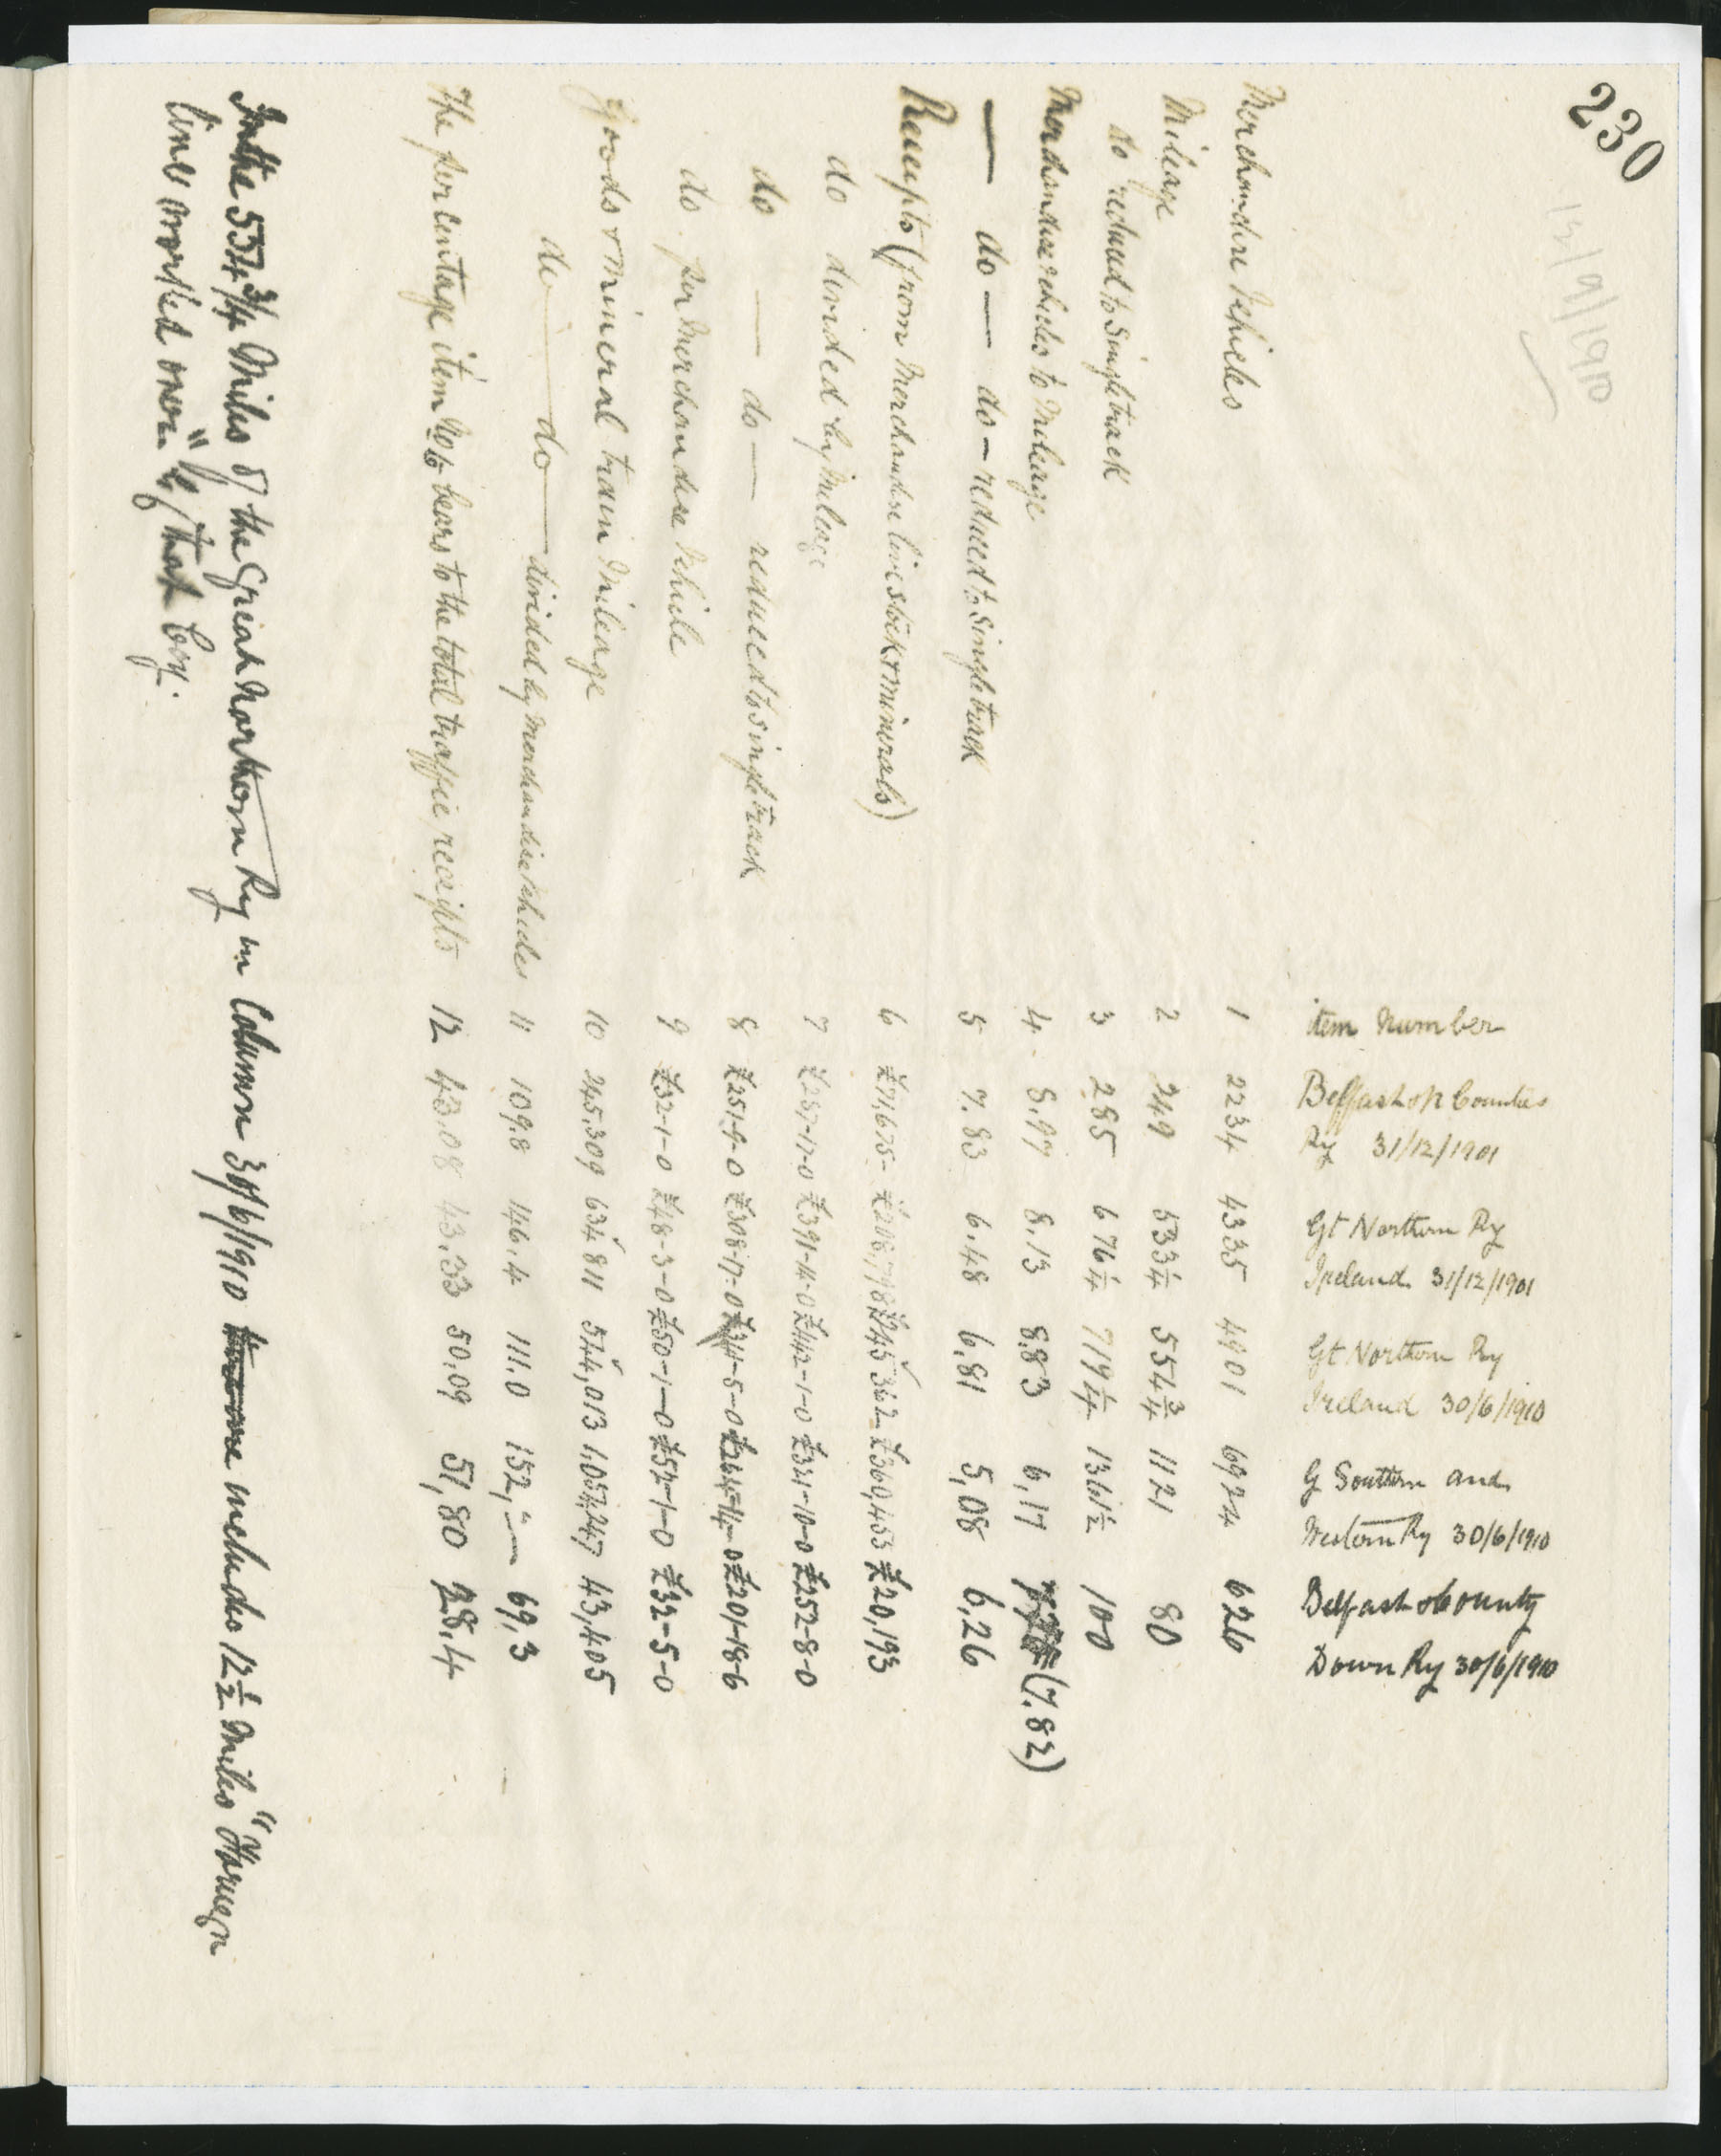 230
13/9/1910
item Number
Belfast & N Counties
Ry 31/12/1901
Gt Northern Ry
Ireland 31/12/1901
Gt Northern Ry
Ireland 30/6/1910
G Southern and
Western Ry 30/6/1910
Belfast & County
Down Ry 30/6/1910
Merchandise Vehicles 1 2234 4335 4901 6924 626
Mileage 2 249 533¼ 554¾ 1121 80
do reduced to Single track 3 285 676¼ 719¼ 1361½ 100
Merchandise vehicles to Mileage 4 8.97 8.13 8.83 6,17 (7.82)
— do — do — reduced to Single track 5 7.83 6.48 6.81 5,08 6,26
Receipts (from Merchandise live stock & minerals) 6 £71,675- £208,798 £245 362- £360,453 £20,193
do divided by Mileage 7 £287-17-0 £391-14-0 £442-1-0 £321-10-0 £252-8-0
do — do — reduced to single track 8 £251-9-0 £308-17-0 £341-5-0 £264-14-0 £201-18-6
do per Merchandise Vehicle 9 £32-1-0 £48-3-0 £50-1-0 £52-1-0 £32-5-0
Goods & Mineral train Mileage 10 245,309 634 811 544,013 1,052,247 43,405
do — do — divided by Merchandise Vehicles 11 109.8 146.4 111.0 152,"— 69,3
The percentage item No 6 bears to the total traffic receipts 12 43.08 43.33 50.09 51,80 28.4
In the 554¾ Miles of the Great Northern Ry in Column 30/6/1910 include 12½ Miles "Foreign
lines worked over" by that Coy.